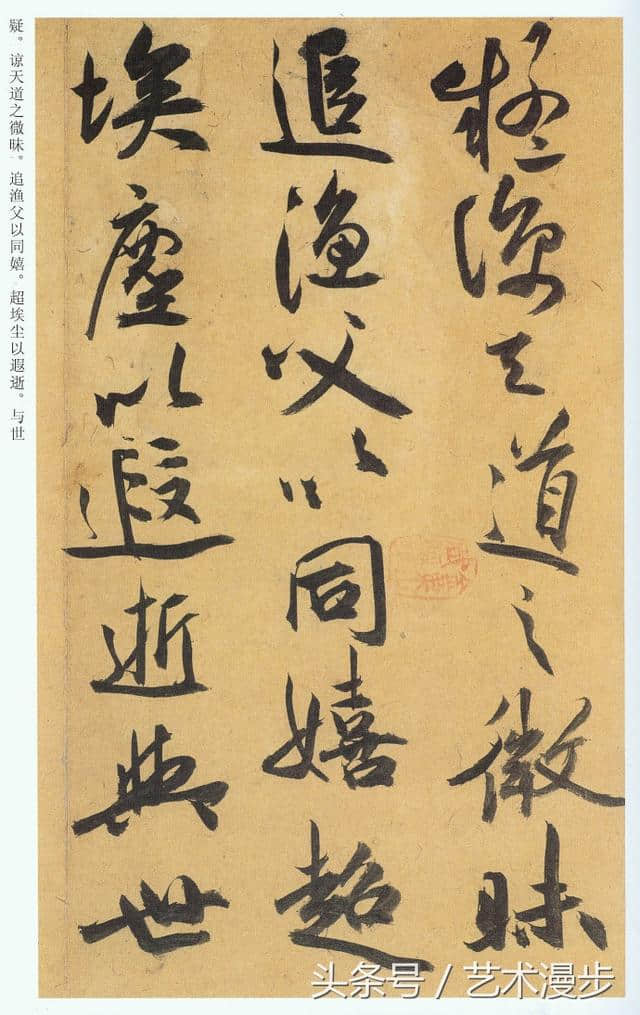 疑諒天道之微昧
追漁父以同嬉超
埃塵以遐逝與世
疑。谅天道之微昧。追渔父以同嬉。超埃尘以遐逝。与世
头条号 / 艺术漫步